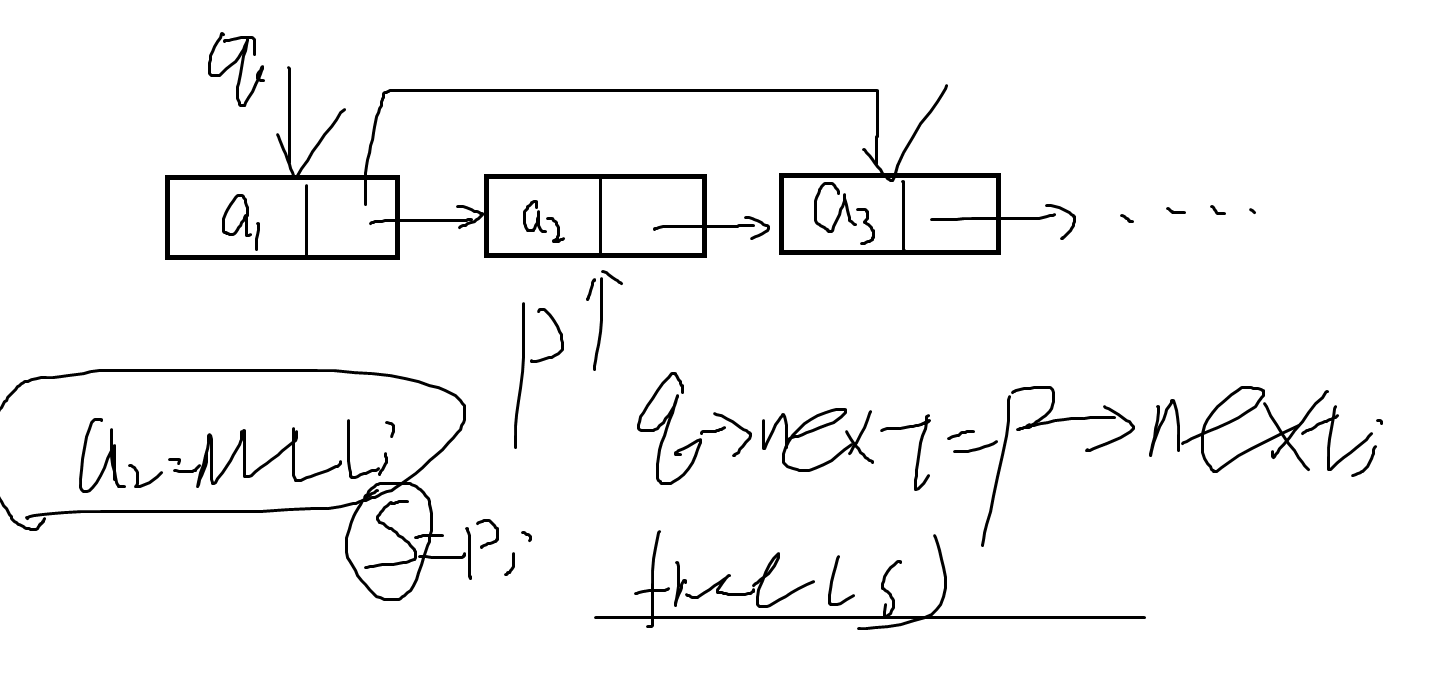 q
a1 a2 a3 ....
p
a2=NULL;
q->next=p->next;
S=p;
free(s)